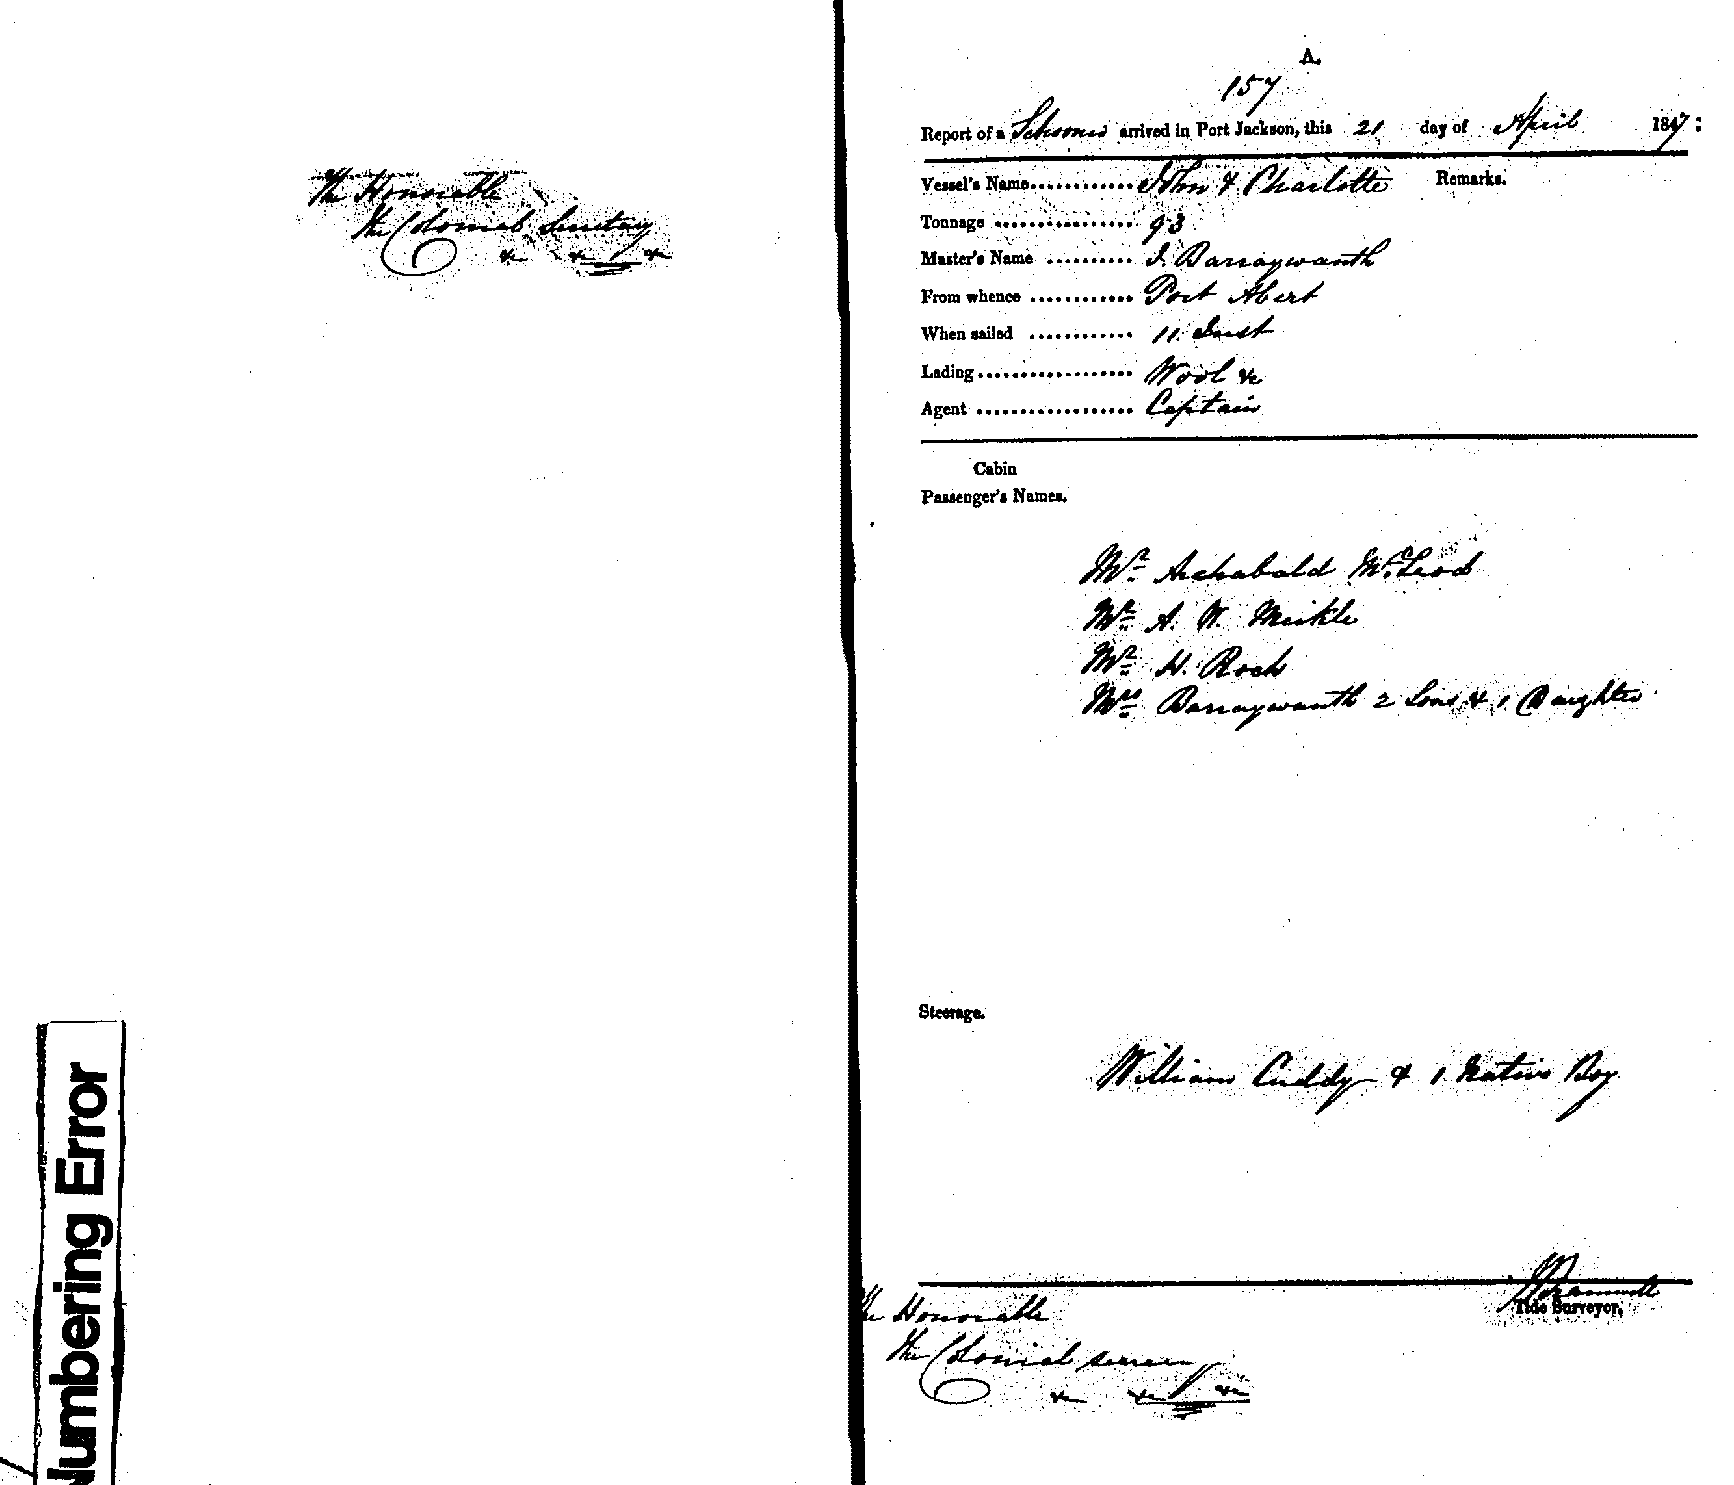 The Honorable
The Colonial Secretary
&c &c &c
Numbering Error
A.
157
Report of a Schooner arrived in Port Jackson, this 21 day of April 1847:
Vessel's Name............. John & Charlotte Remarks.
Tonnage ................. 93
Master's Name .......... J. Barragwanth
From whence ............ Port Albert
When sailed ............ 11. Inst
Lading.................. Wool &c
Agent .................. Captain
Cabin
Passenger's Names.
Mr. Archabald McLeod
Mr. A. W. Meikle
Mr. H. Rock
Mrs. Barragwanth 2 Sons & 1 Daughter
Steerage.
William Cuddy & 1 Native Boy
Tide Surveyor.
The Honorable
The Colonial Secretary
&c &c &c